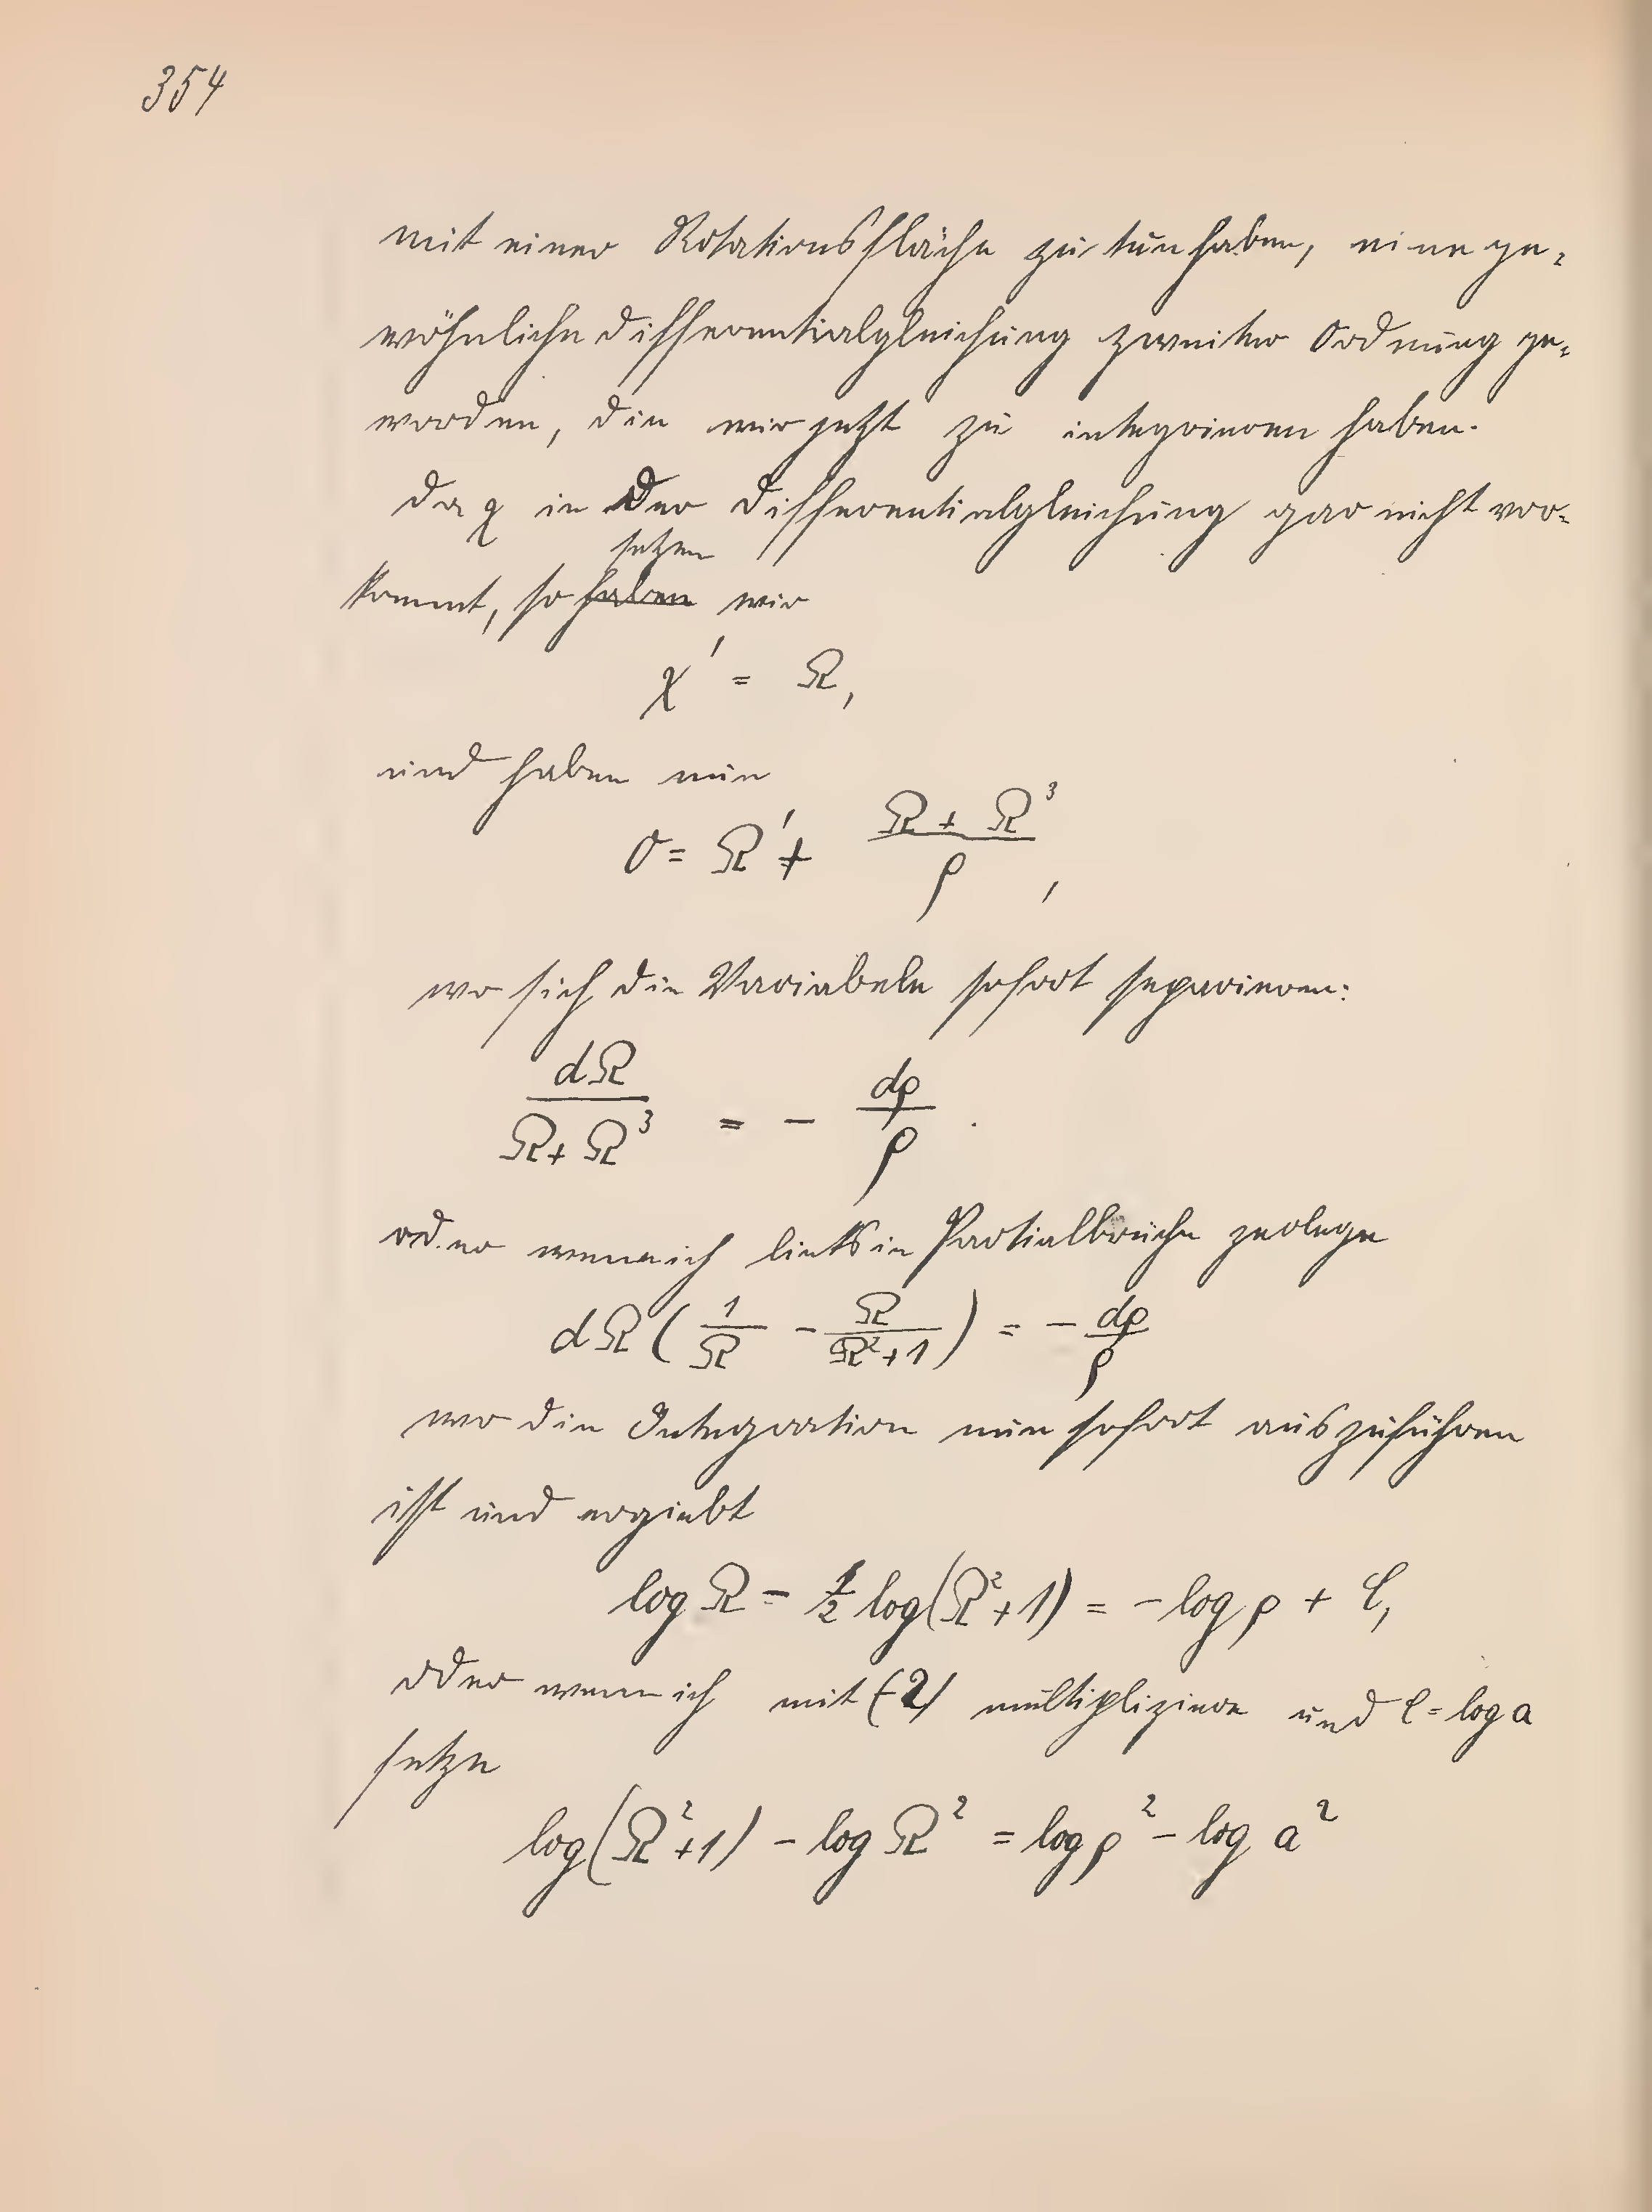 354
mit einer Rotationsfläche zu tun haben, eine ge-
wöhnliche Differentialgleichung zweiter Ordnung ge-
worden, die wir jetzt zu integrieren haben.
Da χ in der Differentialgleichung gar nicht vor-
setzen
kommt, so haben wir
χ' = Ω,
und haben nun
0 = Ω' + (Ω + Ω³)/ρ,
wo sich die Variabeln sofort separieren:
dΩ/(Ω + Ω³) = - dρ/ρ.
oder wenn ich links in Partialbrüche zerlege
dΩ (1/Ω - Ω/(Ω²+1)) = - dρ/ρ
wo die Integration nun sofort auszuführen
ist und ergiebt
log Ω - 1/2 log(Ω²+1) = - log ρ + C,
oder wenn ich mit (-2) multipliziere und C = log a
setze
log(Ω²+1) - log Ω² = log ρ² - log a²